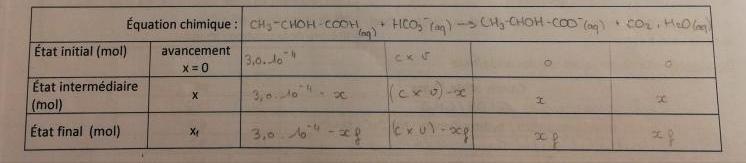 Équation chimique : CH₃-CHOH-COOH (aq) + HCO₃⁻ (aq) → CH₃-CHOH-COO⁻ (aq) + CO₂, H₂O (aq)
État initial (mol) avancement x = 0 3,0.10⁻⁴ c x v 0 0
État intermédiaire (mol) x 3,0.10⁻⁴ - x (c x v) - x x x
État final (mol) xf 3,0.10⁻⁴ - xf (c x v) - xf xf xf